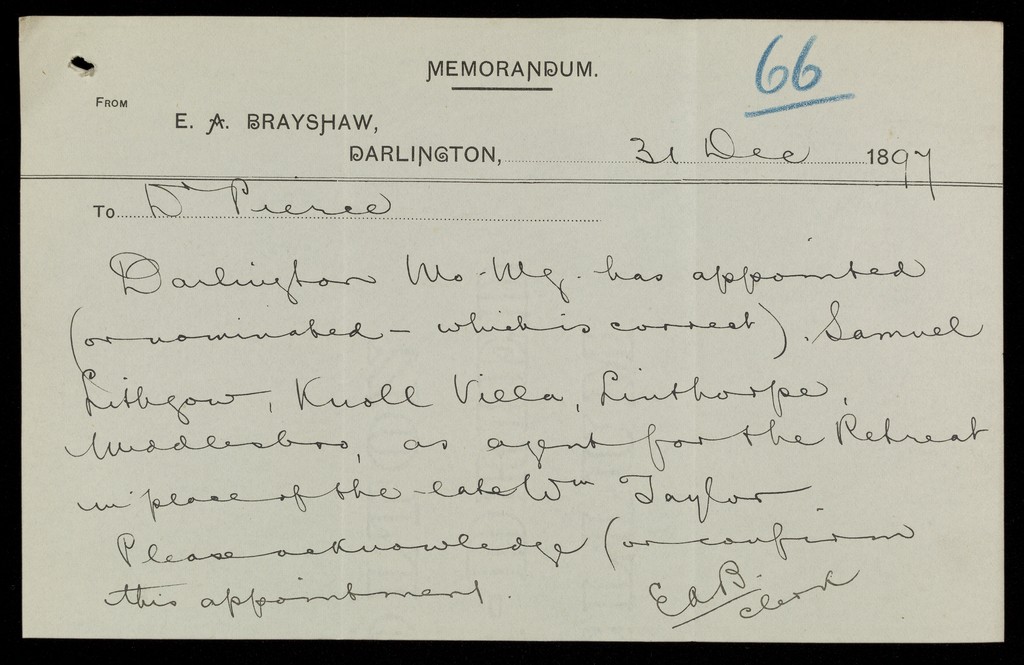 MEMORANDUM.
66
FROM
E. A. BRAYSHAW,
DARLINGTON, 31 Dec 1897
To Dr Pierce
Darlington Mo. Mg. has appointed
(or nominated - which is correct). Samuel
Lithgow, Knoll Villa, Linthorpe,
Middlesbro, as agent for the Retreat
in place of the late Wm Taylor
Please acknowledge (or confirm
this appointment.
EAB.
clerk